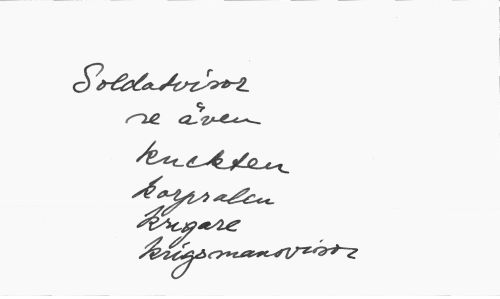 Soldatvisor
se även
knekten
korpralen
krigare
krigsmansvisor